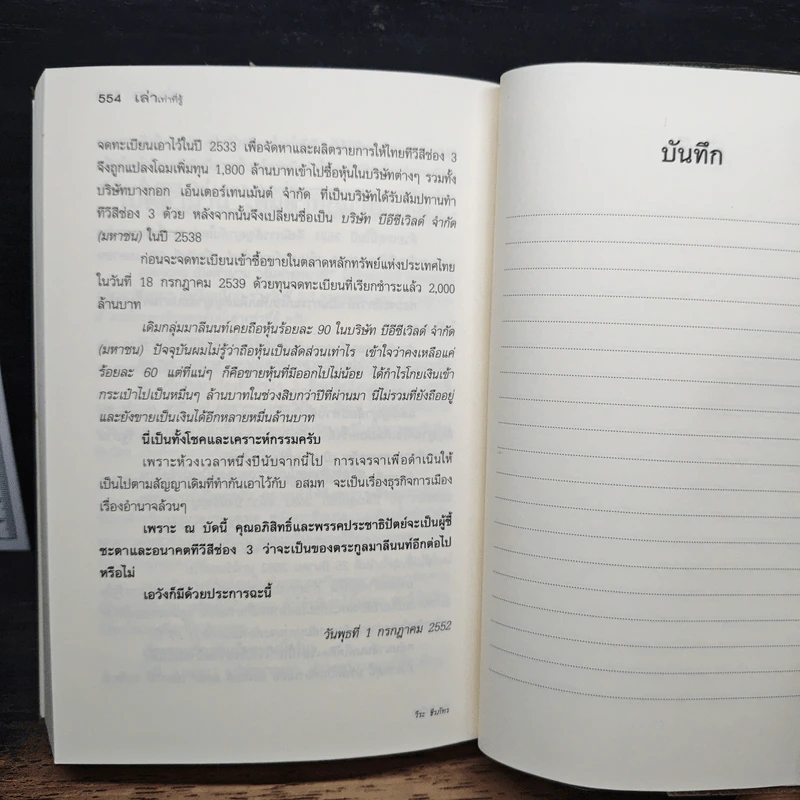 554 เล่าเท่าที่รู้
จดทะเบียนเอาไว้ในปี 2533 เพื่อจัดหาและผลิตรายการให้ไทยทีวีสีช่อง 3
จึงถูกแปลงโฉมเพิ่มทุน 1,800 ล้านบาทเข้าไปซื้อหุ้นในบริษัทต่างๆ รวมทั้ง
บริษัทบางกอก เอ็นเตอร์เทนเม้นต์ จำกัด ที่เป็นบริษัทได้รับสัมปทานทำ
ทีวีสีช่อง 3 ด้วย หลังจากนั้นจึงเปลี่ยนชื่อเป็น บริษัท บีอีซีเวิลด์ จำกัด
(มหาชน) ในปี 2538
ก่อนจะจดทะเบียนเข้าซื้อขายในตลาดหลักทรัพย์แห่งประเทศไทย
ในวันที่ 18 กรกฎาคม 2539 ด้วยทุนจดทะเบียนที่เรียกชำระแล้ว 2,000
ล้านบาท
เดิมกลุ่มมาลีนนท์เคยถือหุ้นร้อยละ 90 ในบริษัท บีอีซีเวิลด์ จำกัด
(มหาชน) ปัจจุบันผมไม่รู้ว่าถือหุ้นเป็นสัดส่วนเท่าไร เข้าใจว่าคงเหลือแค่
ร้อยละ 60 แต่ที่แน่ๆ ก็คือขายหุ้นที่มีออกไปไม่น้อย ได้กำไรโกยเงินเข้า
กระเป๋าไปเป็นหมื่นๆ ล้านบาทในช่วงสิบกว่าปีที่ผ่านมา นี่ไม่รวมที่ยังถืออยู่
และยังขายเป็นเงินได้อีกหลายหมื่นล้านบาท
นี่เป็นทั้งโชคและเคราะห์กรรมครับ
เพราะห้วงเวลาหนึ่งปีนับจากนี้ไป การเจรจาเพื่อดำเนินให้
เป็นไปตามสัญญาเดิมที่ทำกันเอาไว้กับ อสมท จะเป็นเรื่องธุรกิจการเมือง
เรื่องอำนาจล้วนๆ
เพราะ ณ บัดนี้ คุณอภิสิทธิ์และพรรคประชาธิปัตย์จะเป็นผู้ชี้
ชะตาและอนาคตทีวีสีช่อง 3 ว่าจะเป็นของตระกูลมาลีนนท์อีกต่อไป
หรือไม่
เอวังก็มีด้วยประการฉะนี้
วันพุธที่ 1 กรกฎาคม 2552
วีระ ธีรภัทร
บันทึก